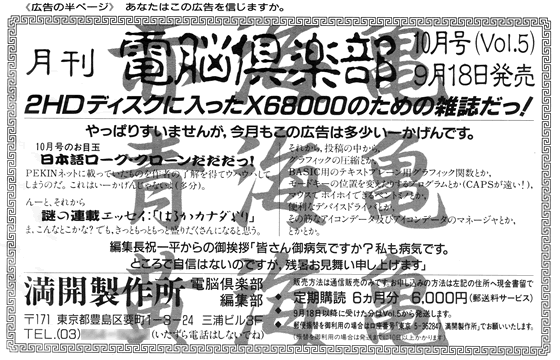 《広告の半ページ》 あなたはこの広告を信じますか。
月刊 電脳倶楽部 10月号(Vol.5)
9月18日発売
2HDディスクに入ったX68000のための雑誌だっ!
やっぱりすいませんが、今月もこの広告は多少いーかげんです。
10月号のお目玉
日本語ローグ・クローンだだだっ!
PEKINネットに載っていたものを作者の了解を得てウハウハして
しまうのだ。これはいーかげんじゃないよ(多分)。
んーと、それから
謎の連載エッセイ:「はるかカナダより」
ま、こんなとこかな?でも、きっともっともっと盛りだくさんになると思う。
それから、投稿の中から、
グラフィックの圧縮とか、
BASIC用のテキストプレーン用グラフィック関数とか、
モードキーの位置を変えたりするプログラムとか(CAPSが遠い!)、
マウスでホイホイできるイベントまとか、
便利なデバイスドライバとか、
その筋なアイコンデータ及びアイコンデータのマネージャとか、
とかとか。
編集長祝一平からの御挨拶「皆さん御病気ですか?私も病気です。
ところで自信はないのですが、残暑お見舞い申し上げます」
満開製作所 電脳倶楽部
編集部
〒171 東京都豊島区要町1-9-24 三浦ビル3F
TEL.(03)
(いたずら電話はしないでね)
販売方法は通信販売のみです。お申し込みの方法は左記の住所へ現金書留で
定期購読 6カ月分 6,000円(郵送料サービス)
9月18日以降に受けつけた分はVol.5から発送します。
郵便振替を御利用の場合は口座番号「東京 5-362847 満開製作所」でお願いいたします。
青海亀
青海亀